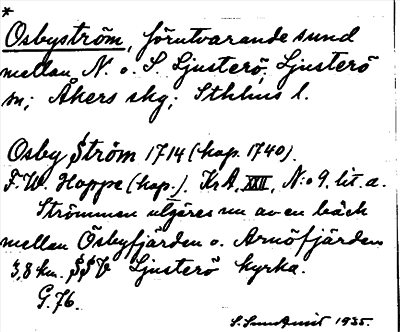 *
Osbyström, förutvarande sund
mellan N. o. S. Ljusterö; Ljusterö
sn; Åkers skg; Sthlms l.
Osby Ström 1714 (kop. 1740).
F. W. Hoppe (kop.). KrA, XXII, N:o 9. lit. a.
Strömmen utgöres nu av en bäck
mellan Ösbyfjärden o. Arnöfjärden
3,8 km. SSV Ljusterö kyrka.
G. 76.
1935.